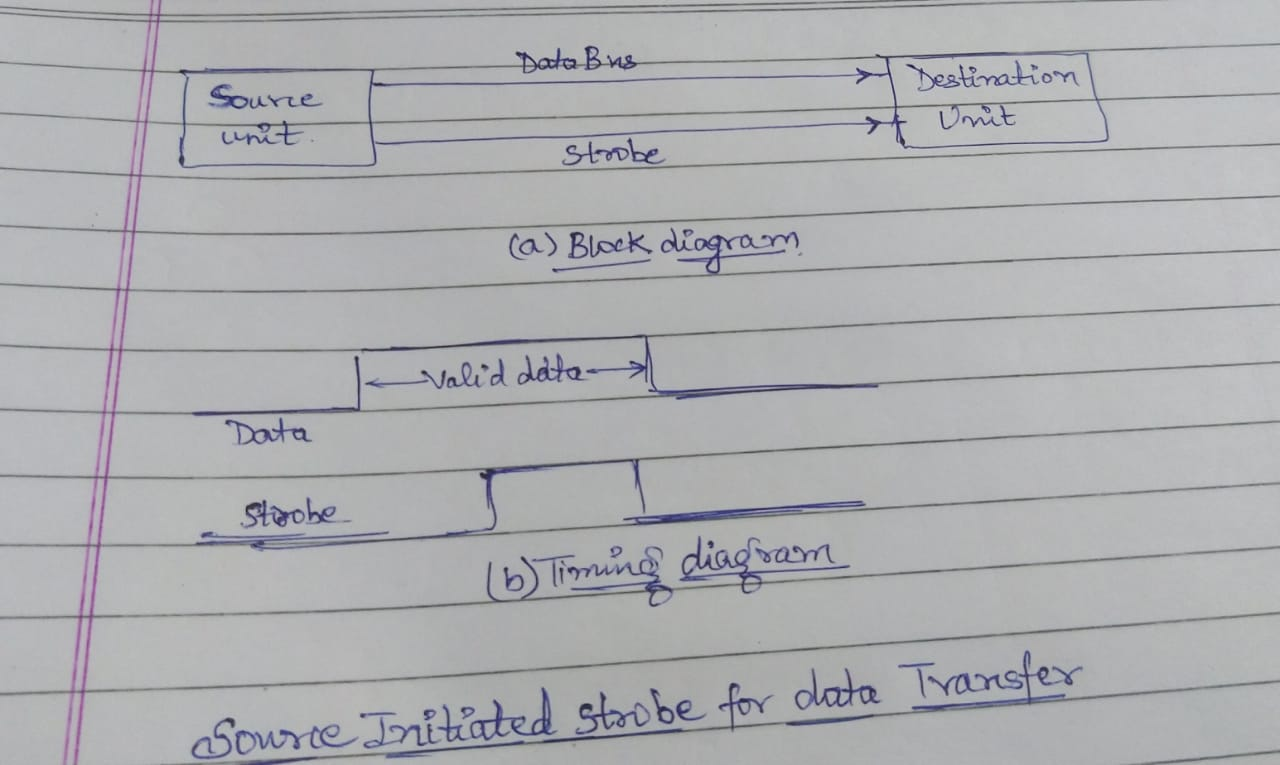 Data Bus
Source
unit.
Destination
Unit
Strobe
(a) Block diagram.
Valid data
Data
Strobe
(b) Timing diagram
Source Initiated strobe for data Transfer